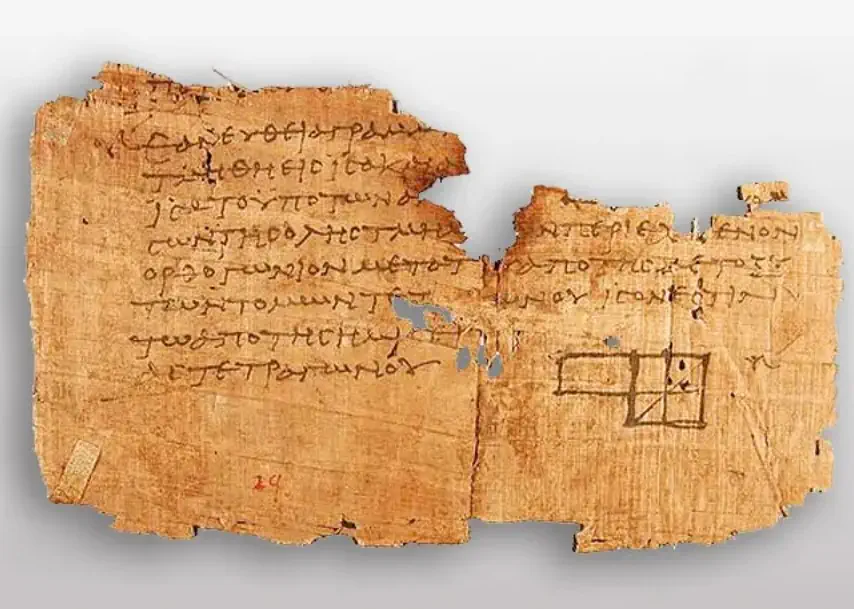 ΕΑΝ ΕΥΘΕΙΑ ΓΡΑΜ
ΤΜΗΘΗ ΕΙϹ ΙϹΑ ΚΑΙ Α
ΙϹΑ ΤΟ ΥΠΟ ΤΩΝ Α
ϹΩΝ ΤΗϹ ΟΛΗϹ ΤΜΗ ΩΝ ΠΕΡΙΕΧ ΕΝΟΝ
ΟΡΘΟΓΩΝΙΟΝ ΜΕΤΑ ΤΟΥ ΑΠΟ ΤΗϹ ΜΕΤΟΞΥ
ΤΩΝ ΤΟΜΩΝ ΤΕΤ ΩΝΟΥ ΙϹΟΝ ΕϹΤΙΝ
ΤΩ ΑΠΟ ΤΗϹ ΗΜΙϹΕΙ
ΑϹ ΤΕΤΡΑΓΩΝΟΥ